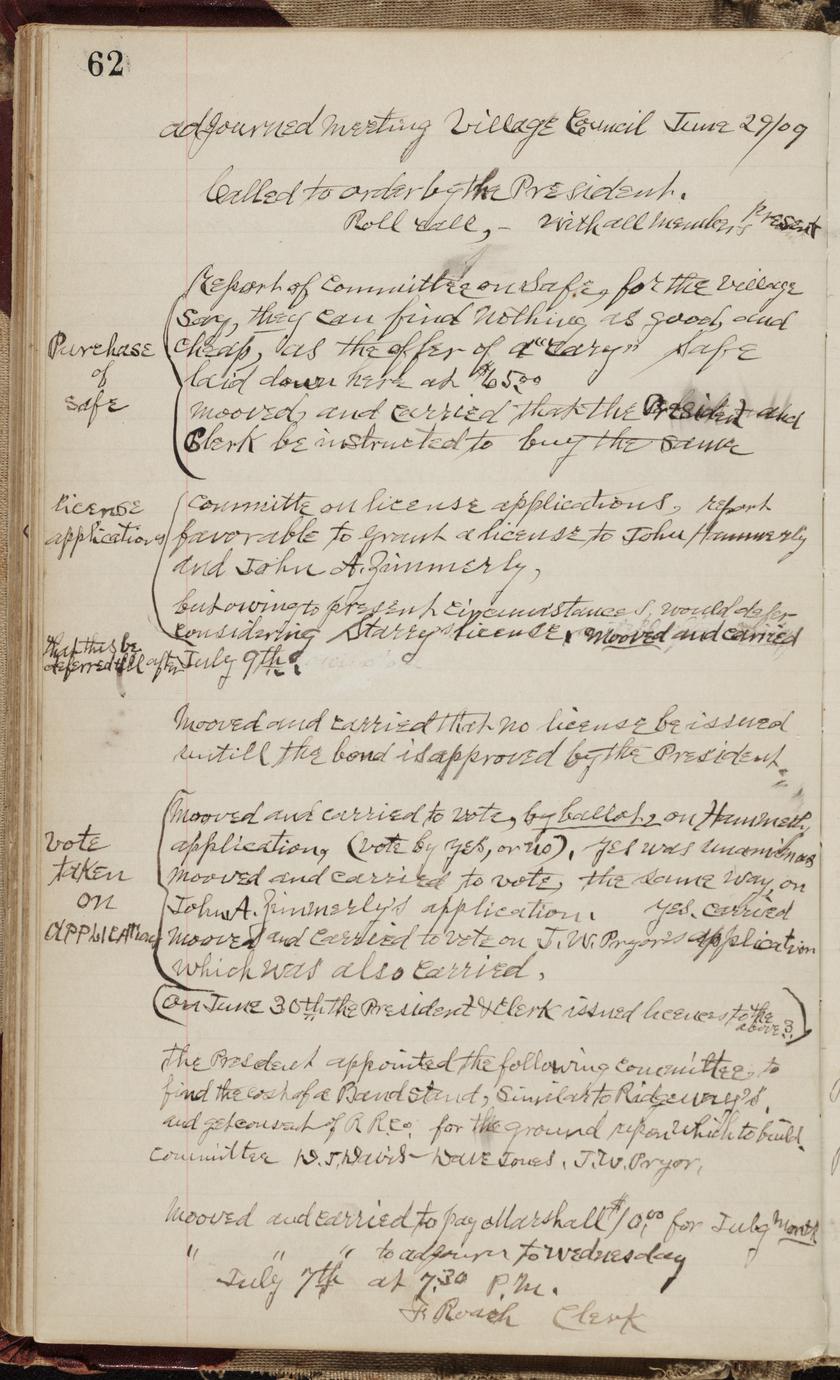 62
adjourned meeting Village Council June 29/09
Called to order by the President.
Roll call, - with all members Present
Report of committee on Safe, for the village
say, they can find nothing as good, and
cheap, as the offer of a "Cary" Safe
laid down here at $65.00
mooved, and carried that the President and
Clerk be instructed to buy the same
Purchase
of
Safe
license
applications
Committe on license applications, report
favorable to grant a license to John Hammerly
and John A. Zimmerly,
but owing to present circumstances, would defer
considering Starry's license, mooved and carried
that this be
deferred till after July 9th.
Mooved and carried that no license be issued
untill the bond is approved by the President
vote
taken
on
APPLICATION
Mooved and carried to vote, by ballot, on Hammerly
application, (vote by yes, or no), yes was unanimous
mooved and carried to vote, the same way, on
John A. Zimmerly's application. yes. carried
mooved and carried to vote on J. W. Pryor's application
which was also carried.
(on June 30th the President & Clerk issued licenses to the
above 3.)
The President appointed the following committee, to
find the cost of a Bandstand, Similar to Ridgeway's,
and get consent of R R Co. for the ground upon which to build.
Committee W. J. Davis - Dave Jones. J. W. Pryor.
Mooved and carried to pay Marshall $10.00 for July Month
" " " to adjourn to wednesday
July 7th at 7.30 P.M.
F. Roach Clerk